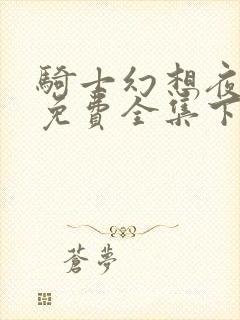 騎士幻想夜
免費全集下
蒼夢